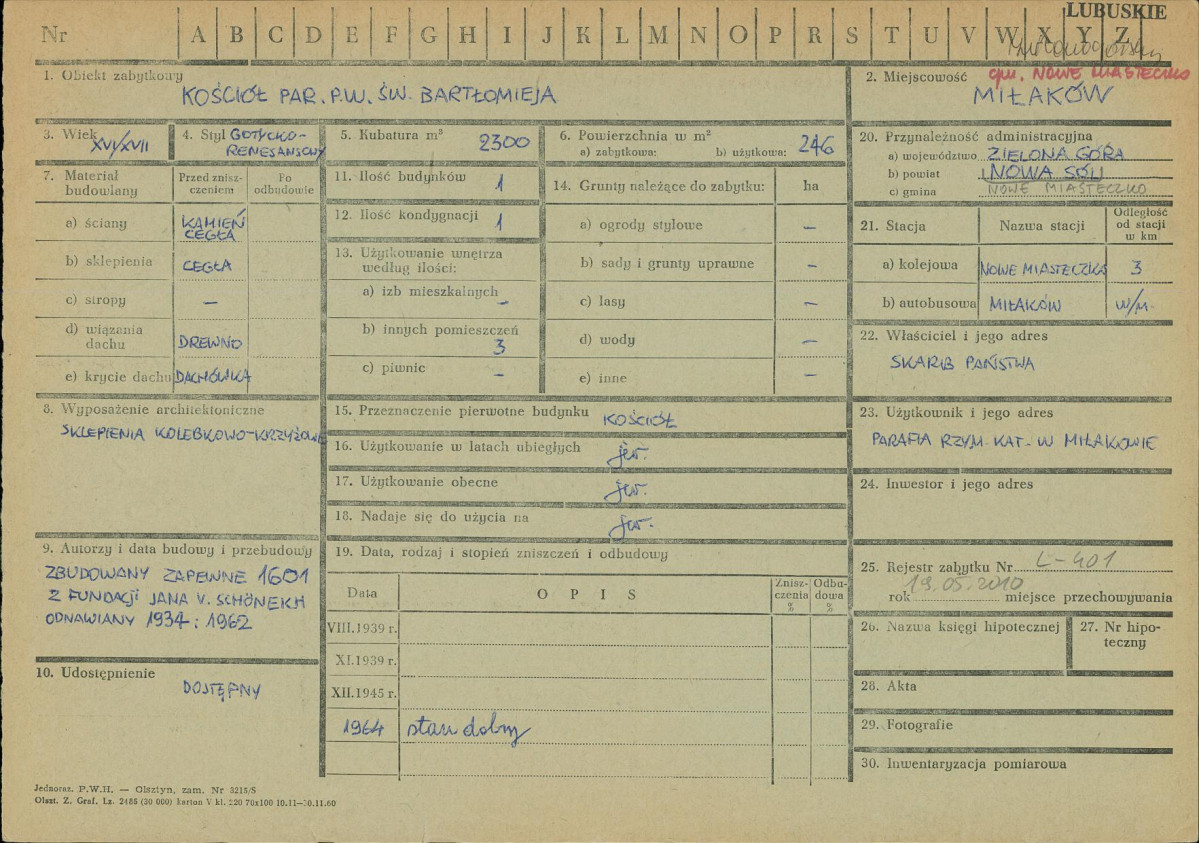 LUBUSKIE
Nr A B C D E F G H I J K L M N O P R S T U V W X Y Z
1. Obiekt zabytkowy
KOŚCIÓŁ PAR. P.W. ŚW. BARTŁOMIEJA
2. Miejscowość gm. NOWE MIASTECZKO
MIŁAKÓW
3. Wiek XVI/XVII
4. Styl GOTYCKO-
RENESANSOWY
5. Kubatura m³ 2300
6. Powierzchnia w m²
a) zabytkowa: b) użytkowa: 246
20. Przynależność administracyjna
a) województwo ZIELONA GÓRA
b) powiat NOWA SÓL
c) gmina NOWE MIASTECZKO
7. Materiał budowlany
Przed znisz-
czeniem
Po
odbudowie
a) ściany KAMIEŃ
CEGŁA
b) sklepienia CEGŁA
c) stropy —
d) wiązania
dachu DREWNO
e) krycie dachu DACHÓWKA
11. Ilość budynków 1
12. Ilość kondygnacji 1
13. Użytkowanie wnętrza
według ilości:
a) izb mieszkalnych –
b) innych pomieszczeń
3
c) piwnic –
14. Grunty należące do zabytku: ha
a) ogrody stylowe –
b) sady i grunty uprawne –
c) lasy –
d) wody –
e) inne –
21. Stacja Nazwa stacji Odległość
od stacji
w km
a) kolejowa NOWE MIASTECZKO 3
b) autobusowa MIŁAKÓW W/M.
22. Właściciel i jego adres
SKARB PAŃSTWA
8. Wyposażenie architektoniczne
SKLEPIENIA KOLEBKOWO-KRZYŻOWE
15. Przeznaczenie pierwotne budynku KOŚCIÓŁ
16. Użytkowanie w latach ubiegłych jw.
17. Użytkowanie obecne jw.
18. Nadaje się do użycia na jw.
23. Użytkownik i jego adres
PARAFIA RZYM-KAT- W MIŁAKOWIE
24. Inwestor i jego adres
9. Autorzy i data budowy i przebudowy
ZBUDOWANY ZAPEWNE 1601
Z FUNDACJI JANA V. SCHÖNEICH
ODNAWIANY 1934; 1962
10. Udostępnienie
DOSTĘPNY
19. Data, rodzaj i stopień zniszczeń i odbudowy
Data O P I S Znisz-
czenia
% Odbu-
dowa
%
VIII.1939 r.
XI.1939 r.
XII.1945 r.
1964 stan dobry
25. Rejestr zabytku Nr L-401
rok 19.05.2010 miejsce przechowywania
26. Nazwa księgi hipotecznej
27. Nr hipo-
teczny
28. Akta
29. Fotografie
30. Inwentaryzacja pomiarowa
Jednoraz. P.W.H. — Olsztyn, zam. Nr 3215/S
Olszt. Z. Graf. Lz. 2486 (30 000) karton V kl. 220 70x100 10.11—30.11.60